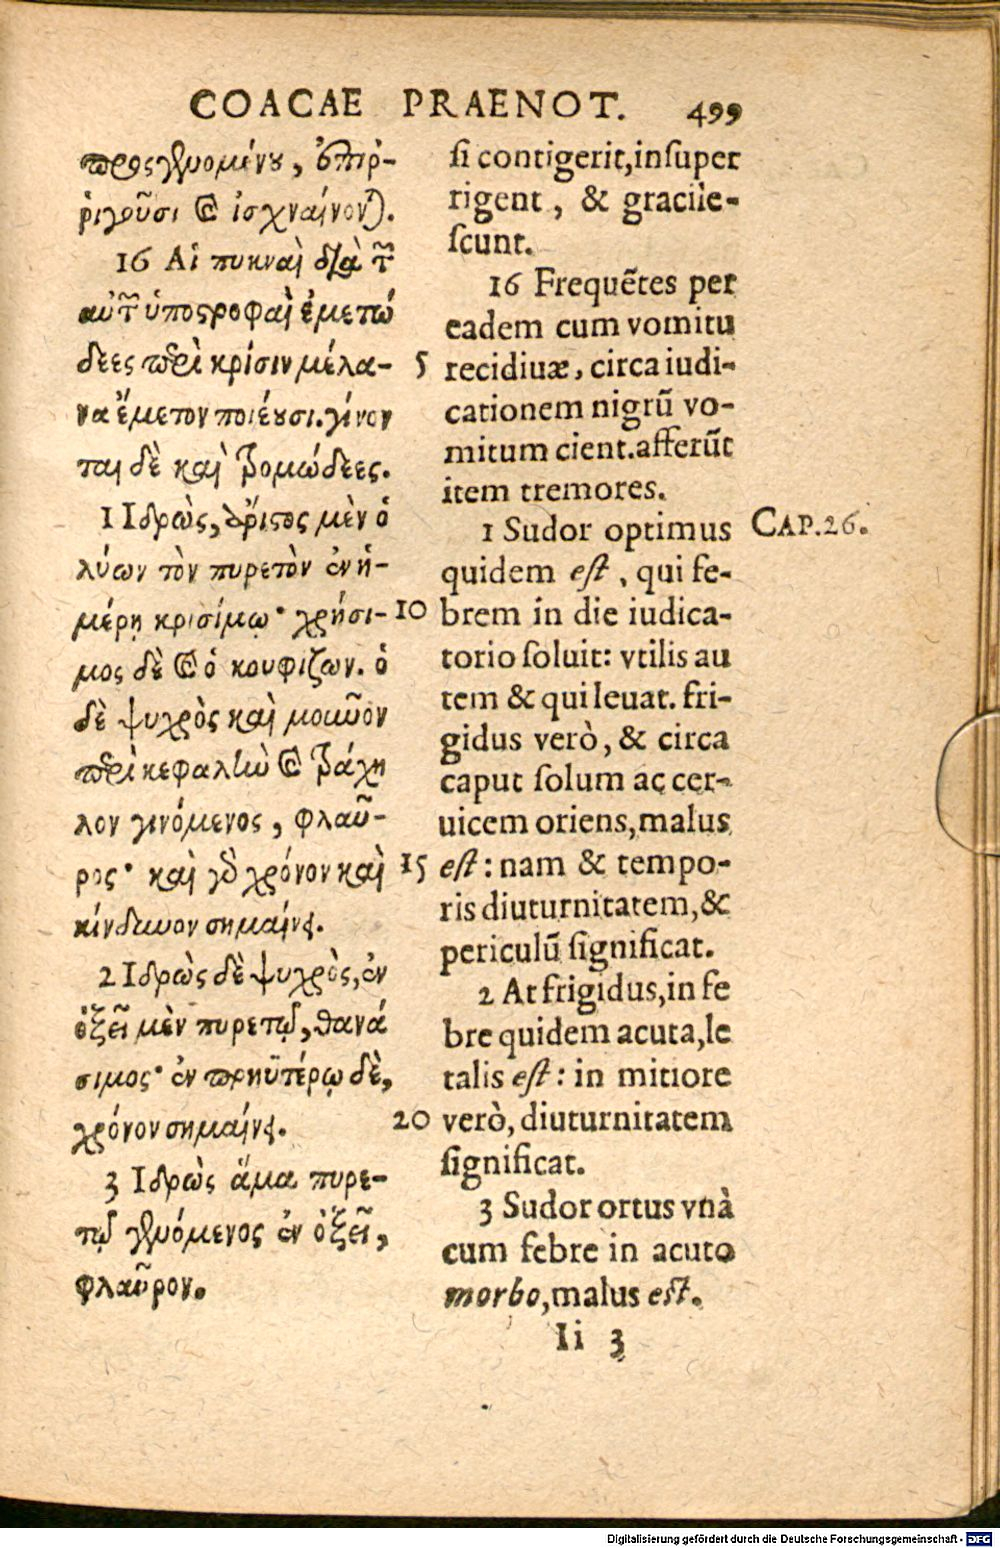 COACAE PRAENOT. 499
προσγενομένου, ἐπιρ-
ριγοῦσι καὶ ἰσχναίνονται.
16 Αἱ πυκναὶ διὰ τῶν
αὐτῶν ὑποστροφαὶ ἐμετώ
δεες περὶ κρίσιν μέλα-
να ἔμετον ποιέουσι. γίνον
ται δὲ καὶ τρομώδεες.
1 Ἱδρὼς, ἄριστος μὲν ὁ
λύων τὸν πυρετὸν ἐν ἡ-
μέρῃ κρισίμῳ· χρήσι-
μος δὲ καὶ ὁ κουφίζων. ὁ
δὲ ψυχρὸς καὶ μοῦνον
περὶ κεφαλὴν καὶ τράχη
λον γινόμενος, φλαῦ-
ρος· καὶ γὰρ χρόνον καὶ
κίνδυνον σημαίνει.
2 Ἱδρὼς δὲ ψυχρὸς, ἐν
ὀξεῖ μὲν πυρετῷ, θανά
σιμος· ἐν πρηϋτέρῳ δὲ,
χρόνον σημαίνει.
3 Ἱδρὼς ἅμα πυρε-
τῷ γενόμενος ἐν ὀξεῖ,
φλαῦρον.
5
10
15
20
si contigerit, insuper
rigent, & gracile-
scunt.
16 Frequẽtes per
eadem cum vomitu
recidiuæ, circa iudi-
cationem nigrũ vo-
mitum cient. afferũt
item tremores.
1 Sudor optimus
quidem est, qui fe-
brem in die iudica-
torio soluit: vtilis au
tem & qui leuat. fri-
gidus verò, & circa
caput solum ac cer-
uicem oriens, malus
est: nam & tempo-
ris diuturnitatem, &
periculũ significat.
2 At frigidus, in fe
bre quidem acuta, le
talis est: in mitiore
verò, diuturnitatem
significat.
3 Sudor ortus vnà
cum febre in acuto
morbo, malus est.
CAP. 26.
Ii 3
Digitalisierung gefördert durch die Deutsche Forschungsgemeinschaft - DFG